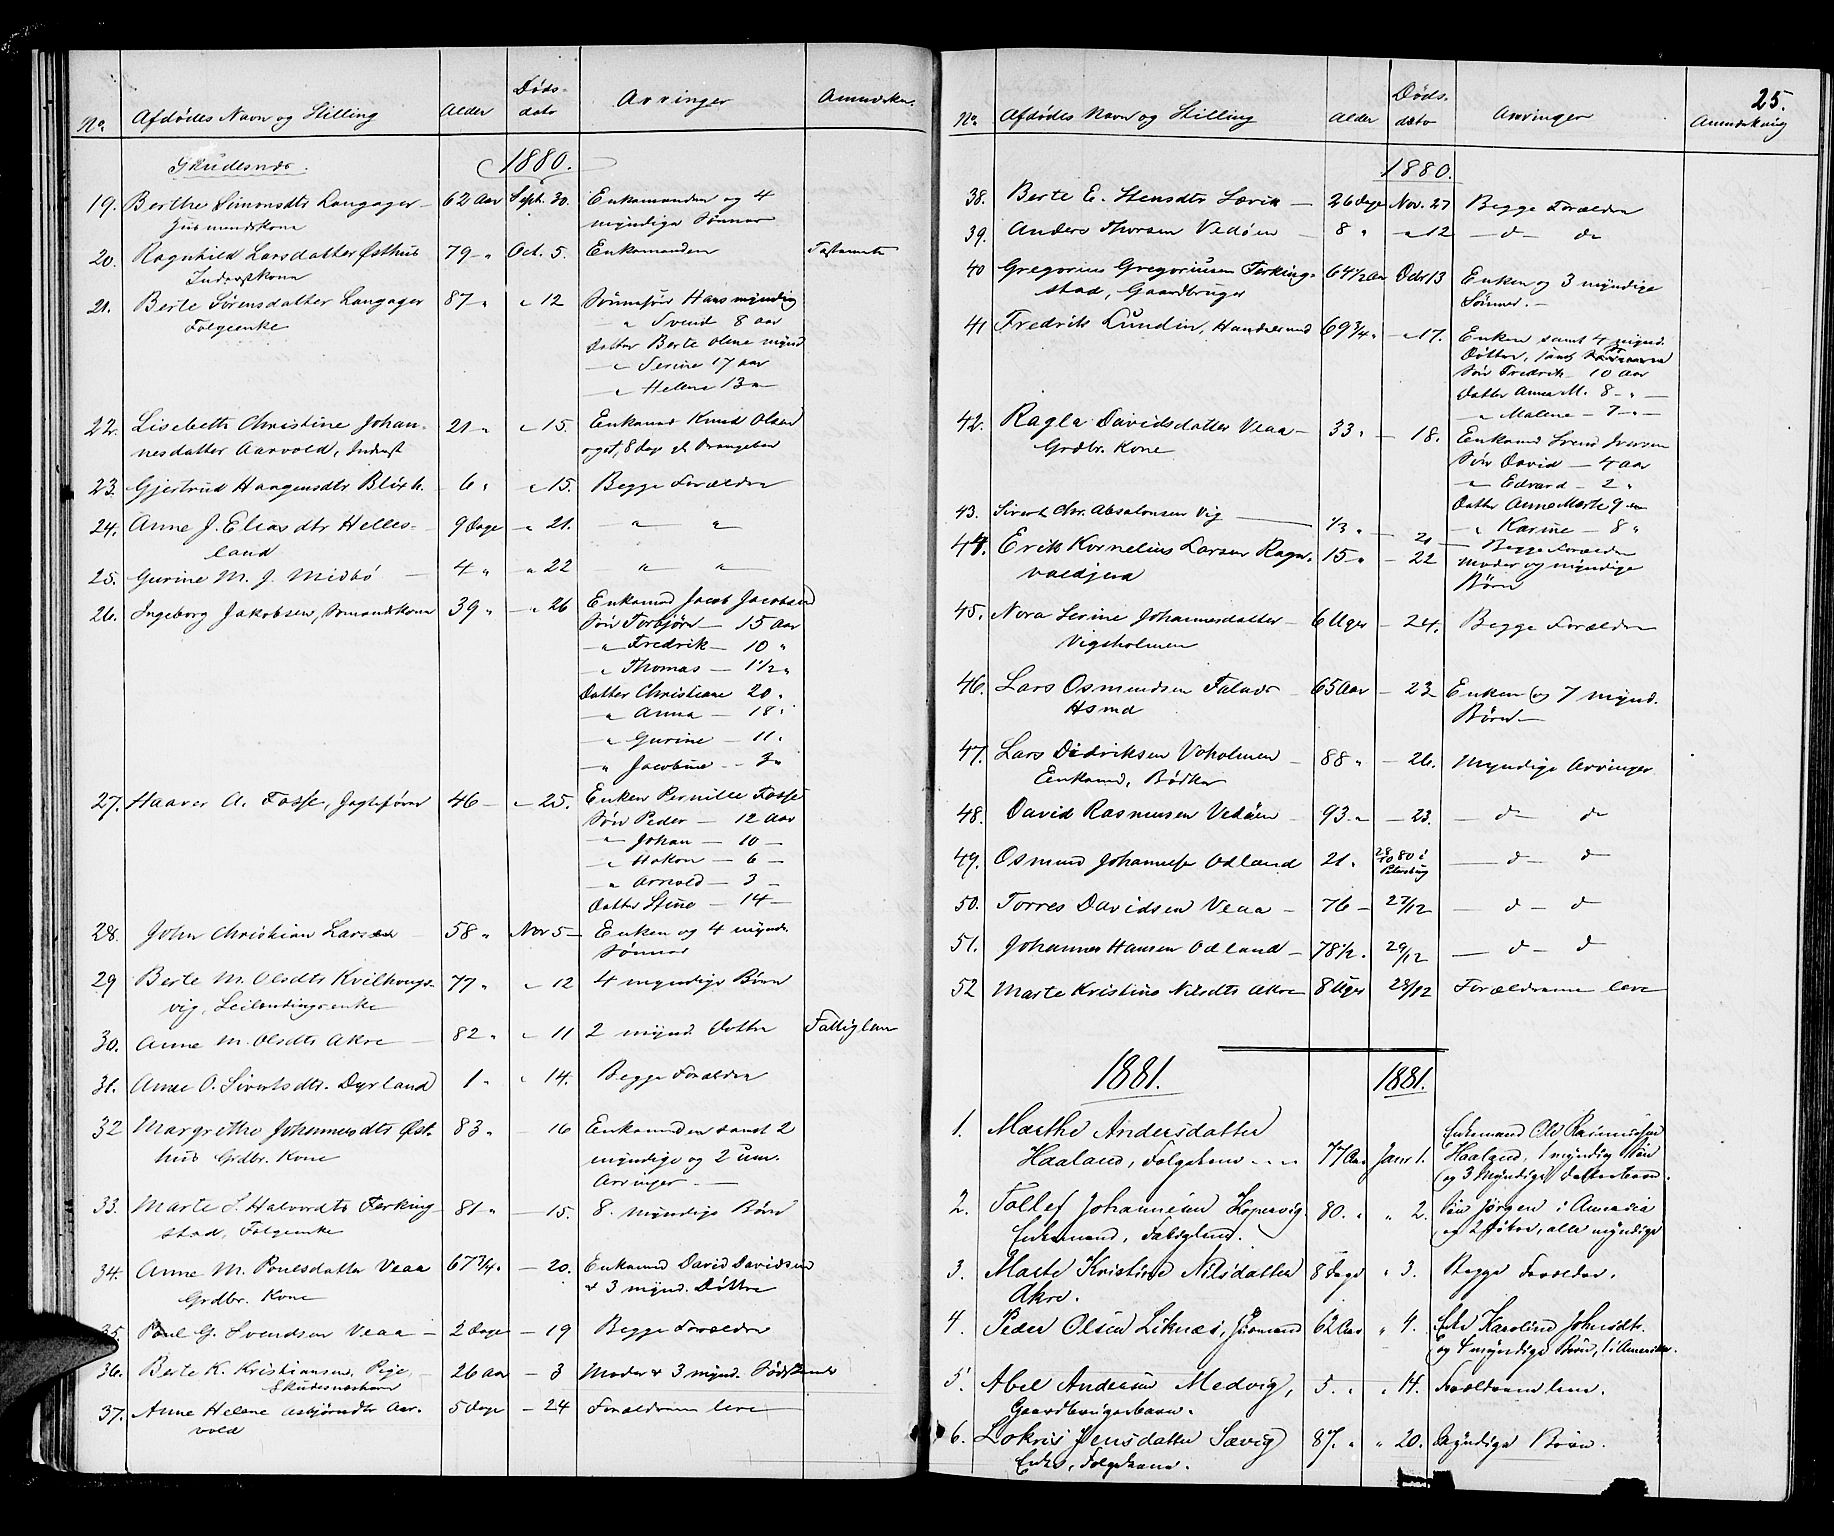 No. Afdødes Navn og Stilling Alder Døds- dato Arvinger Anmerkn.
Skudesnæs. 1880.
19. Berthe Simonsdtr Langager 62 Aar Sept. 30. Enkemanden og 4
Husmandskone myndige Sønner
20. Ragnhild Larsdatter Østhus 79 " Oct. 5. Enkemanden Testamente
Inderstkone
21. Berte Sørensdatter Langager 87 " " 12 Sønnesøn Hans myndig
Folgeenke " Svend 8 aar
Datter Berte Olene mynd
" Serine 17 aar
" Helene 13 "
22. Lisebeth Christine Johan- 21 " " 15. Enkemd Knud Olsen
nesdatter Aarvold, Inderst og et, 8 Dage gl. Drengebarn
23. Gjertrud Haagensdtr Blixh. 6 " " 15. Begge Forældre
24. Anne J. Eliasdtr Helles- 9 Dage " 21. " "
land
25. Gurine M. J. Midbö 4 " " 22 " "
26. Ingeborg Jakobsen, Sömandskone 39 " " 26 Enkemd Jacob Jacobsen
Sön Torbjörn 15 Aar
" Fredrik 10 "
" Thomas 1 1/2 "
Datter Christiane 20 "
" Anna 18 "
" Gurine 11 "
" Jacobine 3 "
27. Haaver A. Fosse, Jagtefører 46 " 25. Enken Pernille Fosse
Sön Peder 12 Aar
" Johan 10
" Hakon 6
" Arnold 3
Datter Stine 14
28. John Christian Larsen 58 " Nov 5 Enken og 4 mynd.
Sønner
29 Berte M. Olsdtr Kvilhaugs- 77 " " 12 4 myndige Börn
vig, Leilendingsenke
30. Anne M. Olsdtr Akre 82 " " 11 2 mynd. Døttre Fattiglem
31. Anne O. Sivertsdtr. Dyrland 1 " " 14. Begge Forældre
32 Margrethe Johannesdtr Øst- 83 " 16 Enkemanden samt 2
hus Grdbr. Kone myndige og 2 um.
Arvinger
33. Marte S. Halvordtr Ferking- 81 " 15. 8. myndige Börn
stad, Folgeenke
34. Anne M. Pouelsdatter Veaa 67 3/4 " 20. Enkemd David Davidsen
Grdbr. Kone & 3 mynd. Döttre
35. Poul G. Svendsen Veaa 2 Dage 19 Begge Forældre
36. Berte K. Kristiansen, Pige, 26 aar 3 Moder & 3 mynd. Södskende
Skudesneshavn
37. Anne Helene Asbjörndtr Aar- 5 Dage 24 Forældrene leve
vold
25.
No. Afdødes Navn og Stilling Alder Døds- dato Arvinger Anmerkning
1880.
38. Berte E. Stensdtr Sævik 26 Dage Nov. 27 Begge Forældre
39. Anders Thorsen Vedöen 8 " " 12 d d
40 Gregorius Gregoriusen Ferking- 64 1/2 Aar Decbr 13 Enken og 3 myndige
stad, Gaardbruger Sönner.
41 Fredrik Lundin, Handelsmd 69 3/4 " " 17. Enken samt 4 mynd.
Döttre, samt
Sön Fredrik 10 aar
Datter Anna M. 8 "
" Malene 7 "
42. Ragla Davidsdatter Veaa 33 " 18. Enkemd Svend Iversen
Grdbr. Kone Sön David 4 aar
" Edvard 2 "
Datter Anne Marte 9 "
43. Sivert Chr. Absalonsen Vig 1/3 " 21 " Karine 8 "
Begge Forældre
44. Erik Kornelius Larsen Ragn- 15 " 22 Moder og myndige
valdjera Börn
45. Nora Serine Johannesdatter 6 Uger 24. Begge Forældre
Vigsholmen
46. Lars Osmundsen Falnes 65 Aar 23 Enken og 7 mynd.
Hsmd Börn
47. Lars Didriksen Voholmen 88 " 26. Myndige Arvinger
Enkemd, Bödker
48. David Rasmusen Vedöen 93 " 23. d d
49. Osmund Johannesen Odland 21 " 28/10 80 i d d
Petersburg
50. Torres Davidsen Veaa 76 27/12 d d
51. Johannes Hansen Odland 78 1/2 " 29/12 d d
52 Marte Kristine Nilsdtr Akre 8 Uger 28/12 Forældrene leve
1881. 1881.
1. Marthe Andersdatter Enkemand Ole Rasmussen
Haaland, Folgekone 77 Aar Janr 1. Haaland, 1 myndig Sön
og 3 myndige Datterbørn.
2. Tollef Johannesen Kopervig 80. " " 2. Sön Jörgen i Amerika
Enkemand, Fattiglem. og 2 Døtre, alle myndige
3. Marte Kristine Nilsdatter 8 Dage " 3. Begge Forældre.
Akre.
4. Peder Olsen Liknæs, Husmand 62 Aar " 4. Enke Karoline Johnsdtr.
og 4 myndige Børn, 1 i Amerika.
5. Abel Andersen Medvig, 5. " " 14. Forældrene leve.
Gaardbrugerbarn.
6. Lokris Jensdatter Sævig 87. " " 20. Myndige Börn.
Enke, Folgekone.